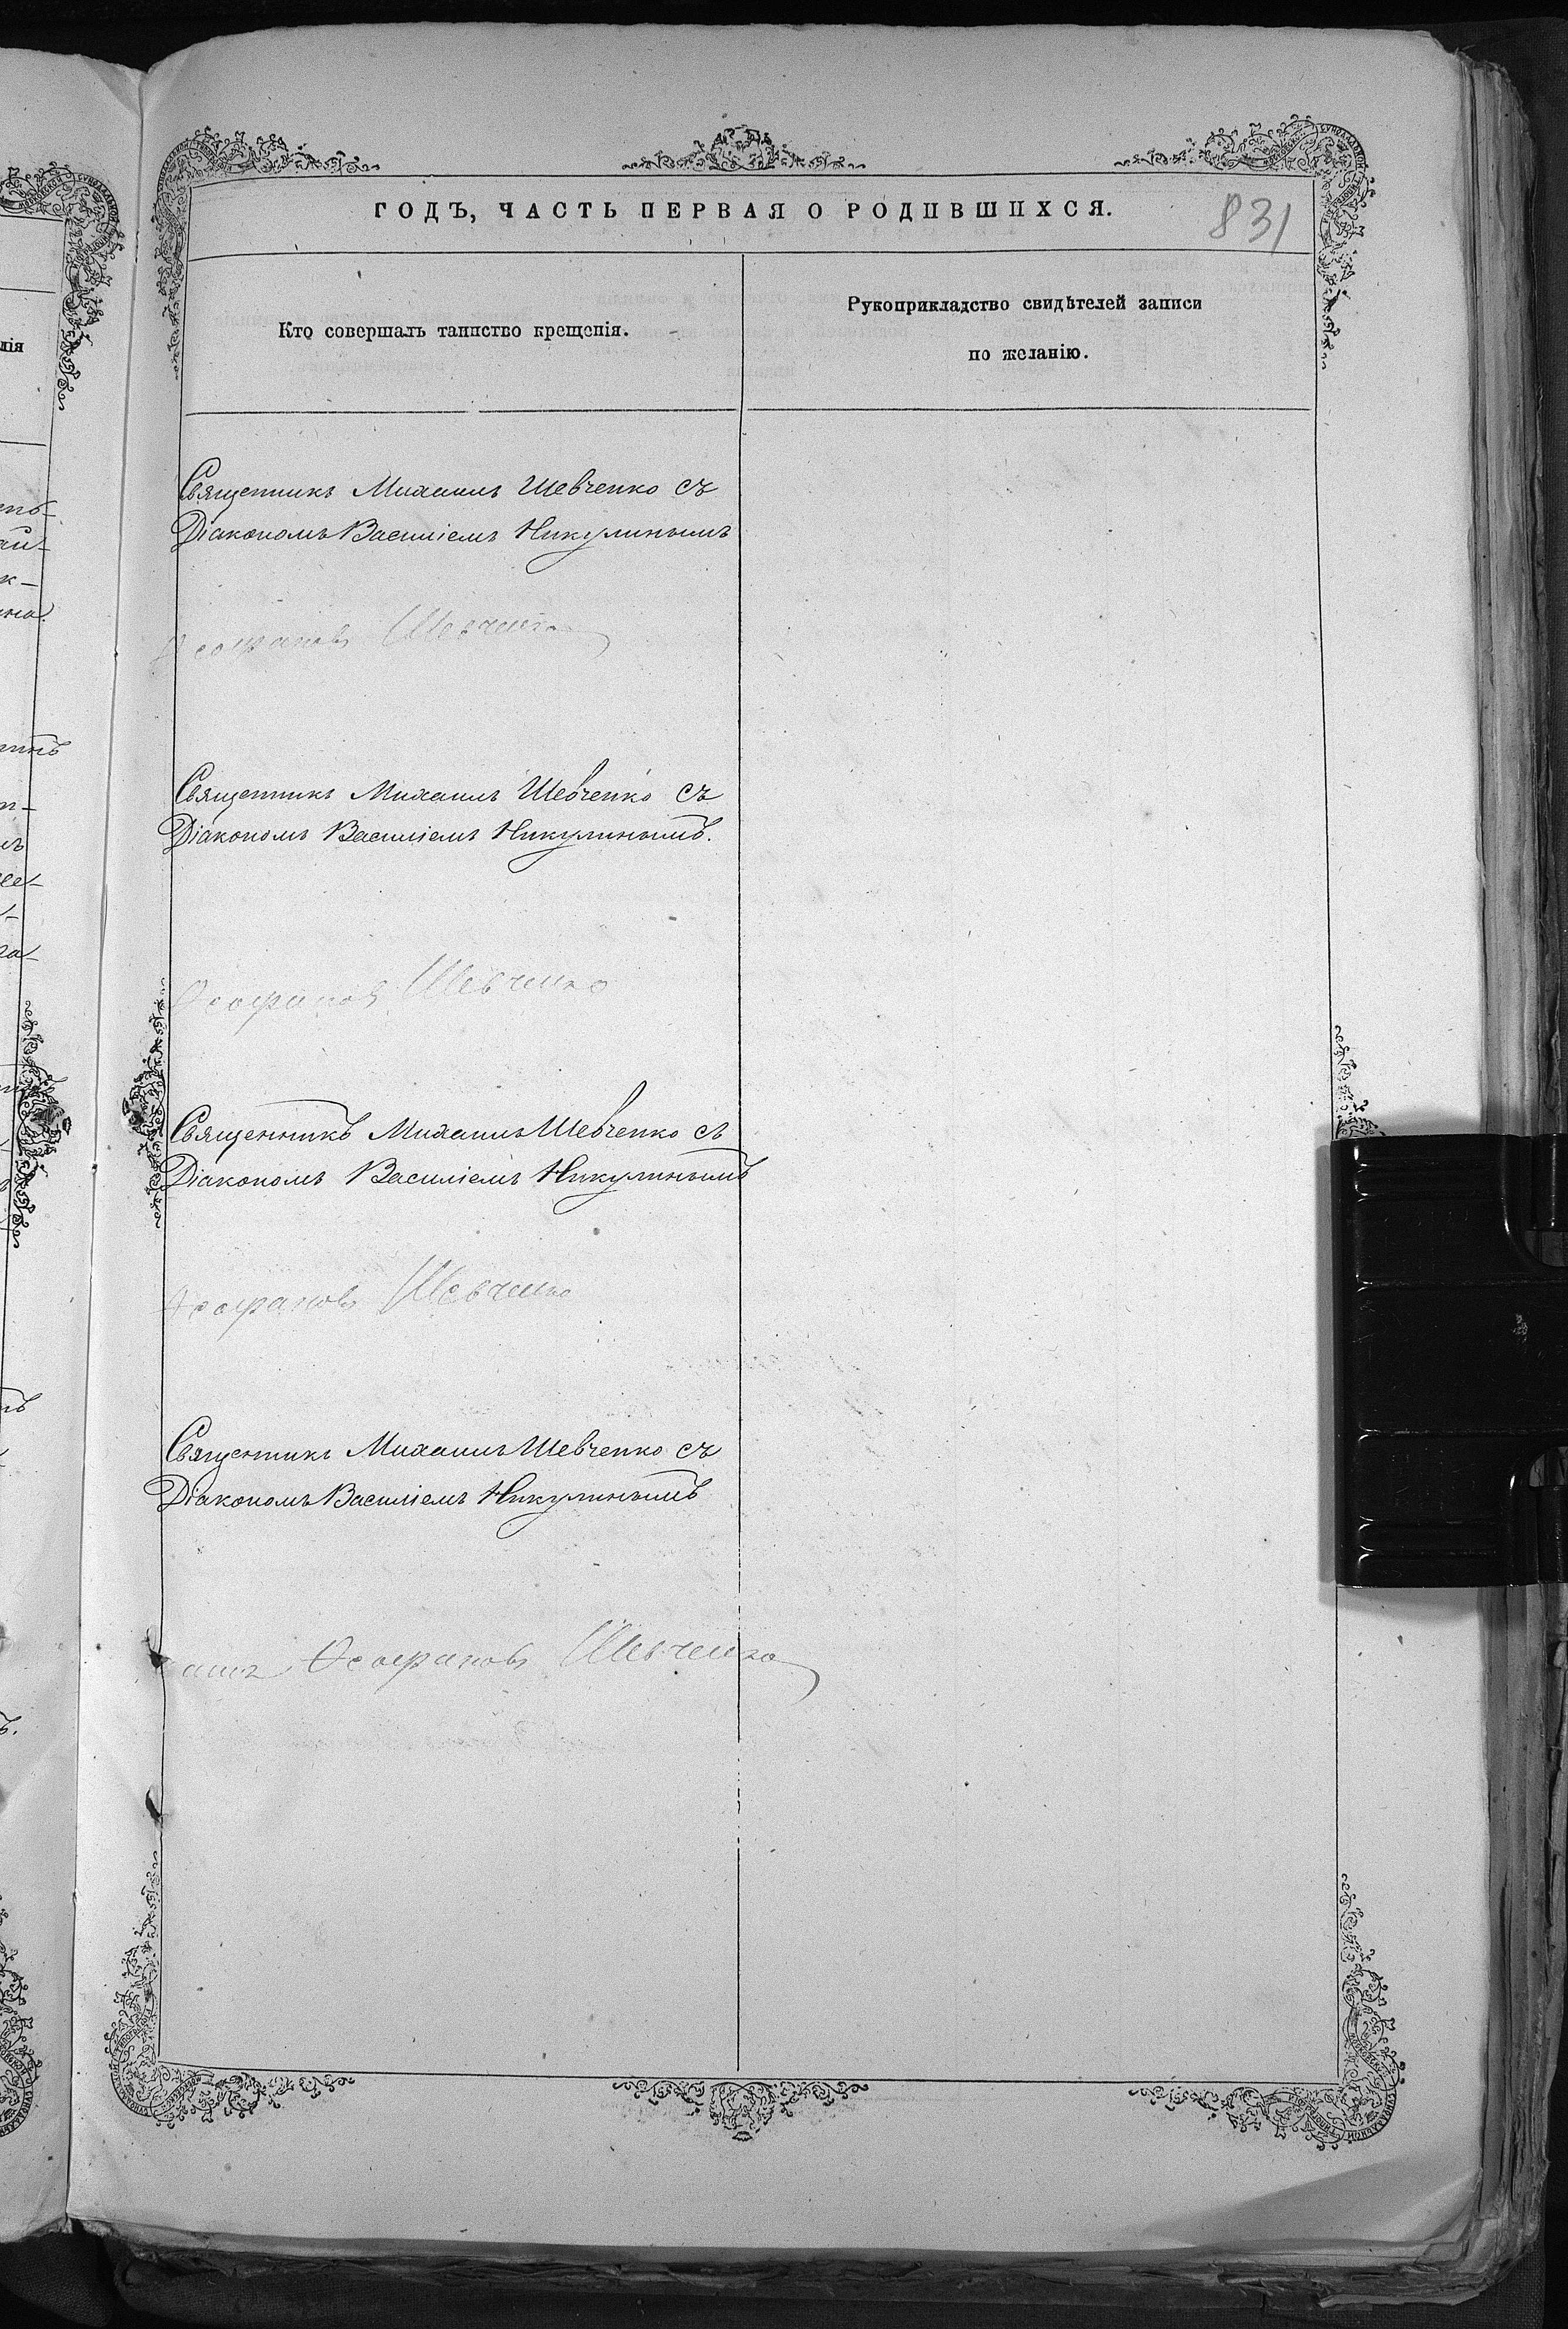 ГОДЪ, ЧАСТЬ ПЕРВАЯ О РОДИВШИХСЯ.
831
Кто совершалъ таинство крещенія.
Рукоприкладство свидѣтелей записи
по желанію.
Священникъ Михаилъ Шевченко съ
Діакономъ Василіемъ Никулинымъ
Ѳеофановъ Шевченко
Священникъ Михаилъ Шевченко съ
Діакономъ Василіемъ Никулинымъ.
Ѳеофановъ Шевченко
Священникъ Михаилъ Шевченко съ
Діакономъ Василіемъ Никулинымъ
Ѳеофановъ Шевченко
Священникъ Михаилъ Шевченко съ
Діакономъ Василіемъ Никулинымъ
Ѳеофановъ Шевченко